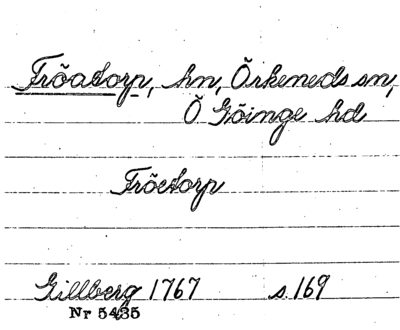 Fröatorp, hn, Örkeneds sn,
Ö Göinge hd
Fröetorp
Gillberg 1767 s. 169
Nr 5435